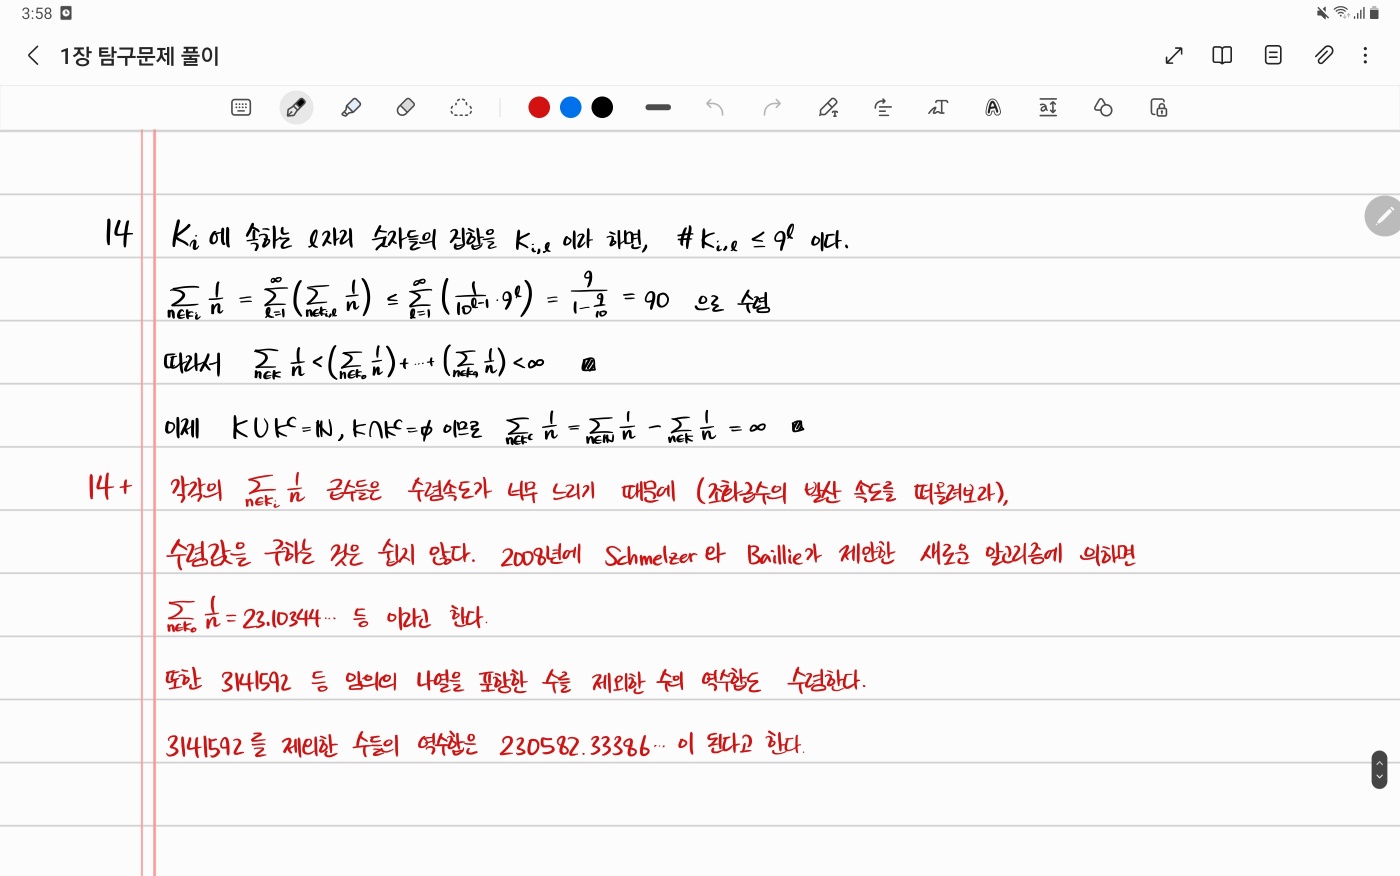 3:58
1장 탐구문제 풀이
14 K_i 에 속하는 ℓ자리 숫자들의 집합을 K_{i,ℓ} 이라 하면, #K_{i,ℓ} ≤ 9^ℓ 이다.
∑_{n∈K_i} 1/n = ∑_{ℓ=1}^{∞} (∑_{n∈K_{i,ℓ}} 1/n) ≤ ∑_{ℓ=1}^{∞} (1/10^{ℓ-1} · 9^ℓ) = 9/(1 - 9/10) = 90 으로 수렴
따라서 ∑_{n∈K} 1/n < (∑_{n∈K_0} 1/n) + ··· + (∑_{n∈K_9} 1/n) < ∞ ▨
이제 K ∪ K^c = ℕ, K ∩ K^c = ϕ 이므로 ∑_{n∈K^c} 1/n = ∑_{n∈ℕ} 1/n − ∑_{n∈K} 1/n = ∞ ▨
14+ 각각의 ∑_{n∈K_i} 1/n 급수들은 수렴속도가 너무 느리기 때문에 (조화급수의 발산 속도를 떠올려보라),
수렴값을 구하는 것은 쉽지 않다. 2008년에 Schmelzer 와 Baillie가 제안한 새로운 알고리즘에 의하면
∑_{n∈K_0} 1/n = 23.10344··· 등 이라고 한다.
또한 3141592 등 임의의 나열을 포함한 수를 제외한 수의 역수합도 수렴한다.
3141592를 제외한 수들의 역수합은 230582.33386··· 이 된다고 한다.